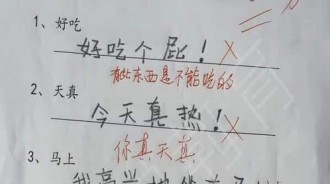 1、好吃
好吃个屁！
有些东西是不能吃的
2、天真
今天真热！
你真天真
3、马上
我高兴地坐在马